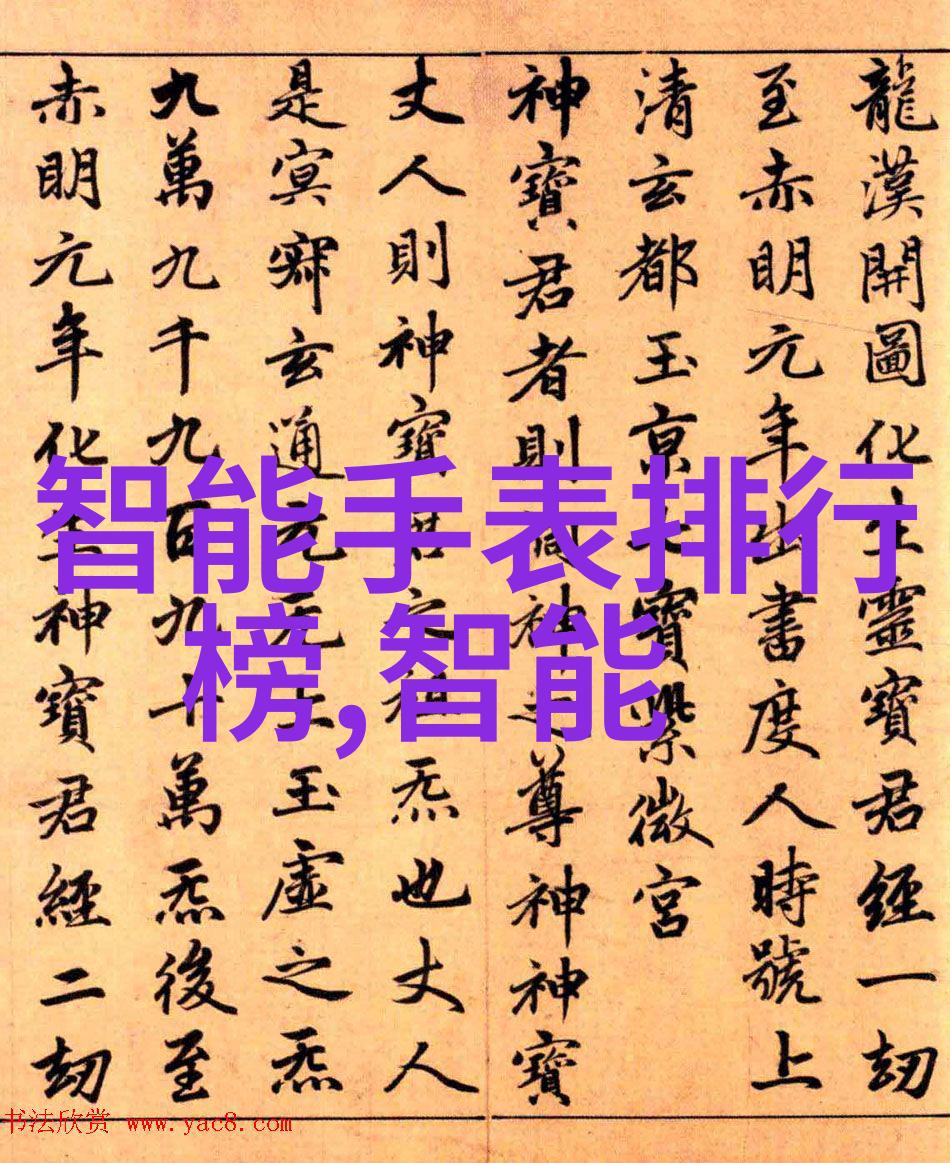 龍漢開圖化生靈寶君經一劫
至赤明元年出書度人時號上
清玄都玉京七寶紫微宮
神寶君者則洞神之尊神神寶
丈人則神寶君之祖炁也丈人
是冥寂玄通元无上玉虛之炁
九萬九千九百九十萬炁後至
赤明元年化生神寶君經二劫
智能手表排行
榜,智能
书法欣赏 www.yac8.com